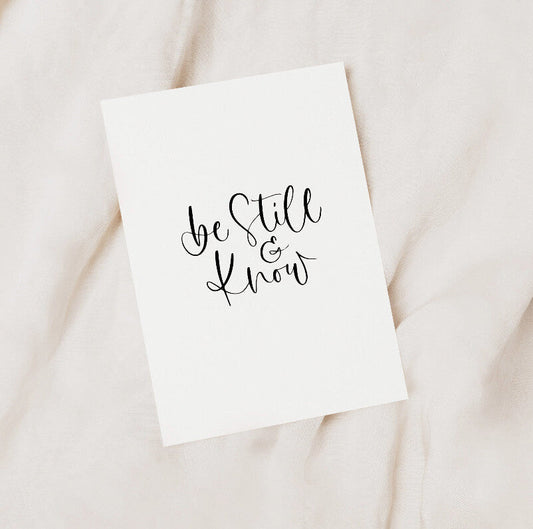 be Still
&
Know